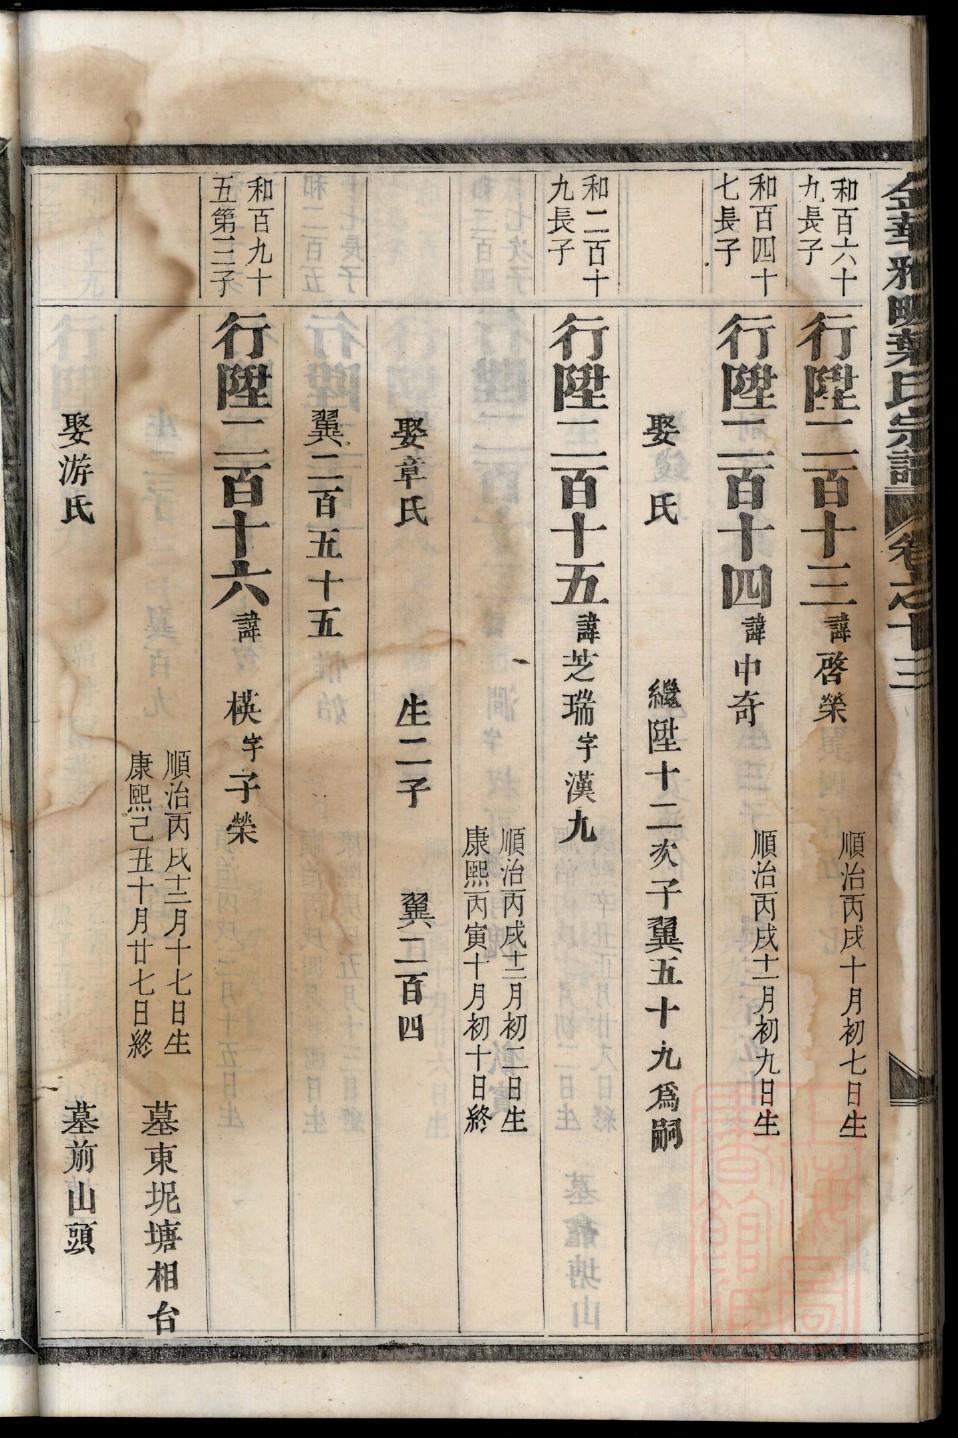 金華雅畈葉氏宗譜 卷之十三
和百六十
九長子
行陞二百十三 諱啓榮
順治丙戌十月初七日生
和百四十
七長子
行陞二百十四 諱中奇
順治丙戌十一月初九日生
娶 氏
繼陞十二次子翼五十九為嗣
和二百十
九長子
行陞二百十五 諱芝瑞字漢九
順治丙戌十二月初二日生
康熙丙寅十月初十日終
娶章氏 生二子 翼二百四
翼二百五十五
和百九十
五第三子
行陞二百十六 諱 模字子榮
順治丙戌十二月十七日生
康熙己丑十月廿七日終
墓東坭塘相台
娶游氏 墓前山頭